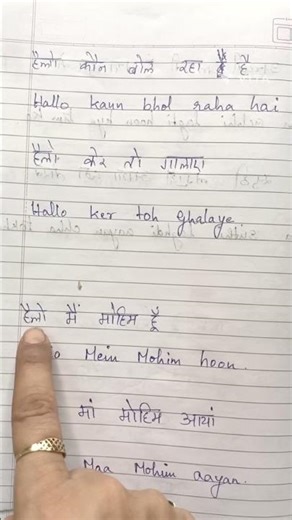 हैलो कौन बोल रहा है
Hallo kaun bhol raha hai
हैलो केर तो गालाए
Hallo ker toh ghalaye.
हैलो मैं मोहिम हूँ
Mein Mohim hoon.
मां मोहिम आयां
Maa Mohim aayan.